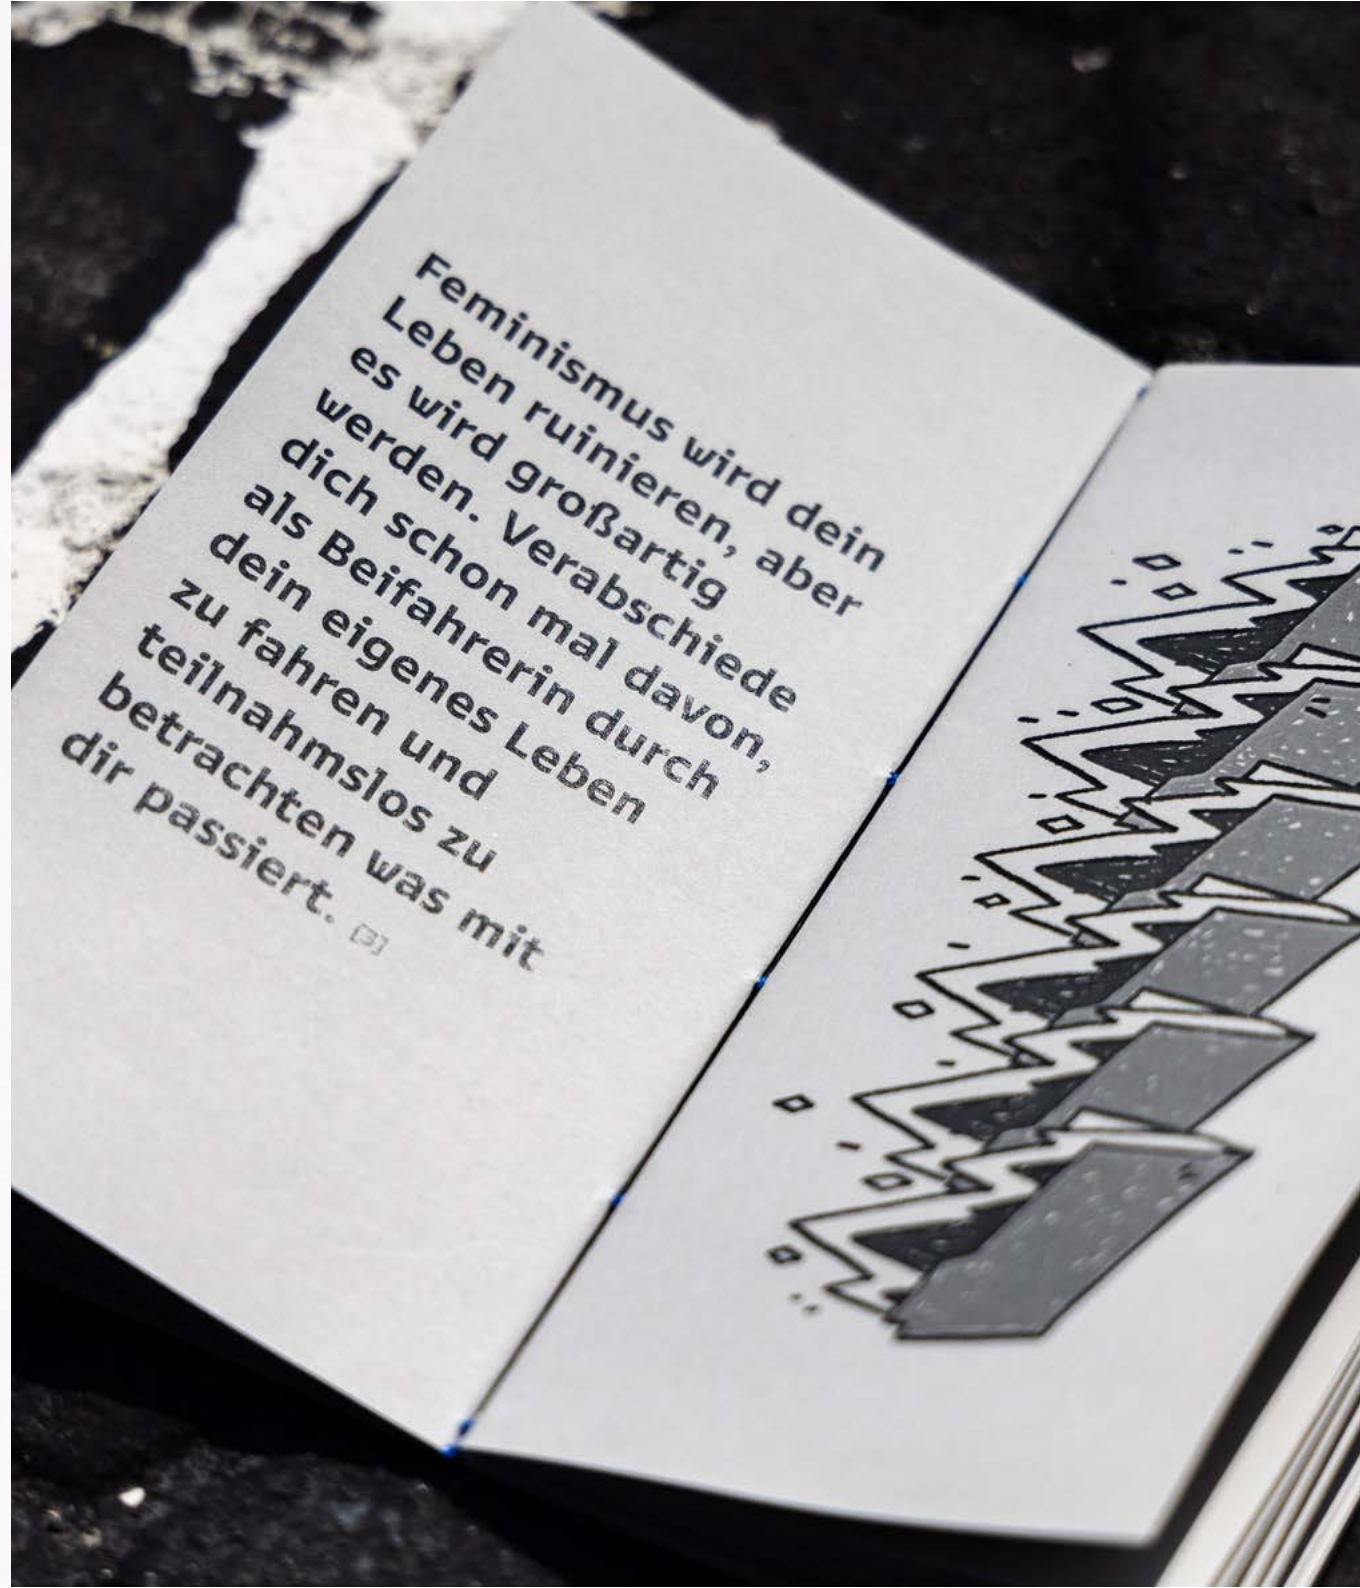 Feminismus wird dein
Leben ruinieren, aber
es wird großartig
werden. Verabschiede
dich schon mal davon,
als Beifahrerin durch
dein eigenes Leben
zu fahren und
teilnahmslos zu
betrachten was mit
dir passiert. [3]